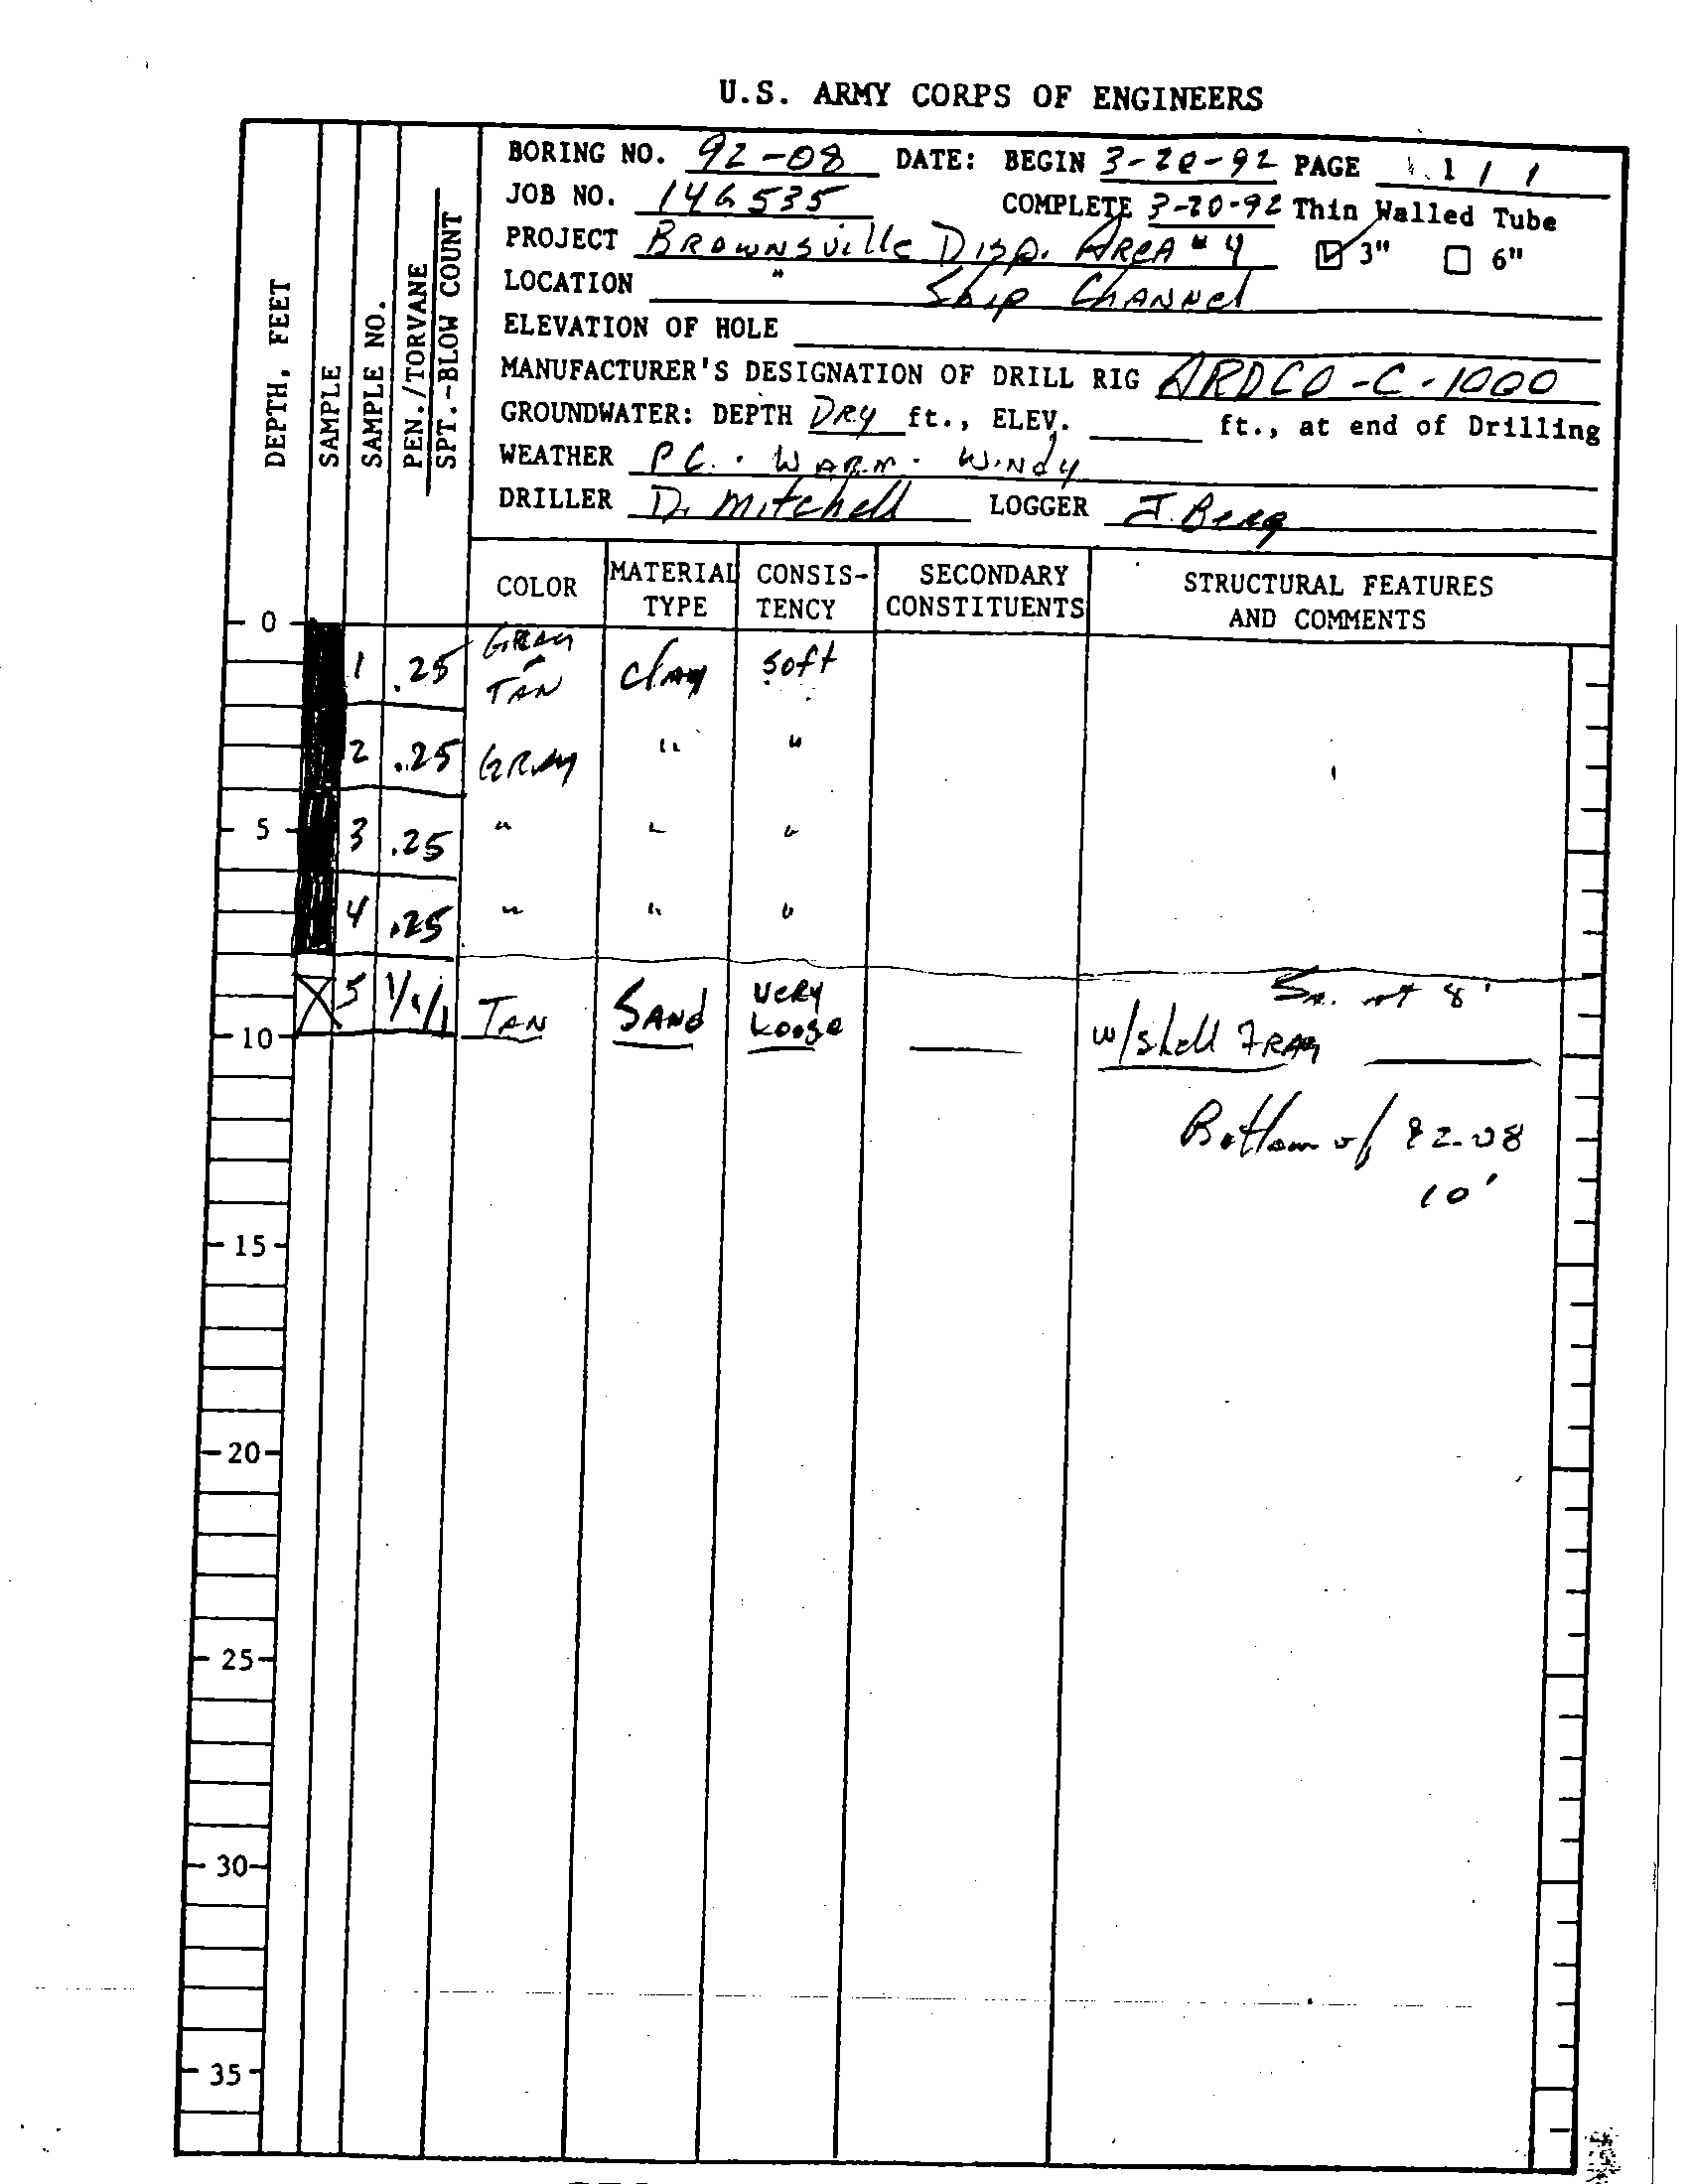 U.S. ARMY CORPS OF ENGINEERS
BORING NO. 92-08 DATE: BEGIN 3-20-92 PAGE 1 / 1
JOB NO. 146535 COMPLETE 3-20-92 Thin Walled Tube
PROJECT BROWNSVILLE DISP. AREA #4 3" 6"
LOCATION " Ship CHANNel
ELEVATION OF HOLE
MANUFACTURER'S DESIGNATION OF DRILL RIG ARDCO-C-1000
GROUNDWATER: DEPTH DRY ft., ELEV. ft., at end of Drilling
WEATHER P.C. WARM. WiNdy
DRILLER D. Mitchell LOGGER J. Berg
DEPTH, FEET
SAMPLE
SAMPLE NO.
PEN./TORVANE
SPT.-BLOW COUNT
COLOR MATERIAL TYPE CONSIS-TENCY SECONDARY CONSTITUENTS STRUCTURAL FEATURES AND COMMENTS
0
1 .25 GRAY TAN clay soft
2 .25 GRAY " "
5 3 .25 " " "
4 .25 " " "
5 1/1/1 TAN SANd VeRy Loose w/shell FRAG
Sa. at 8'
10
Bottom of 92-08
10'
15
20
25
30
35